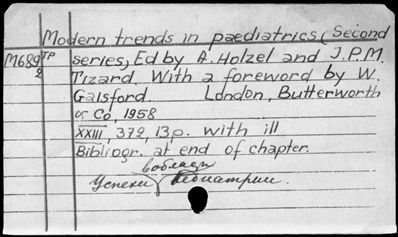 Modern trends in paediatrics (Second
M689 TP series, Ed by A. Holzel and J.P.M.
2 Tizard. With a foreword by W.
Gaisford. London, Butterworth
& Co, 1958
XXIII, 372, 13p. with ill
Bibliogr. at end of chapter.
в области
Успехи педиатрии.